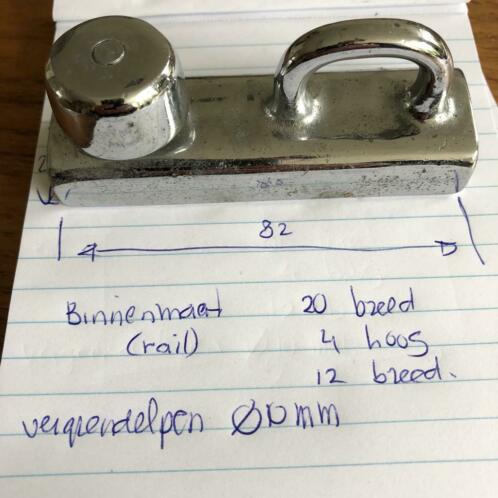 82
Binnenmaat 20 breed
(rail) 4 hoog
12 breed.
vergrendelpen Ø10mm